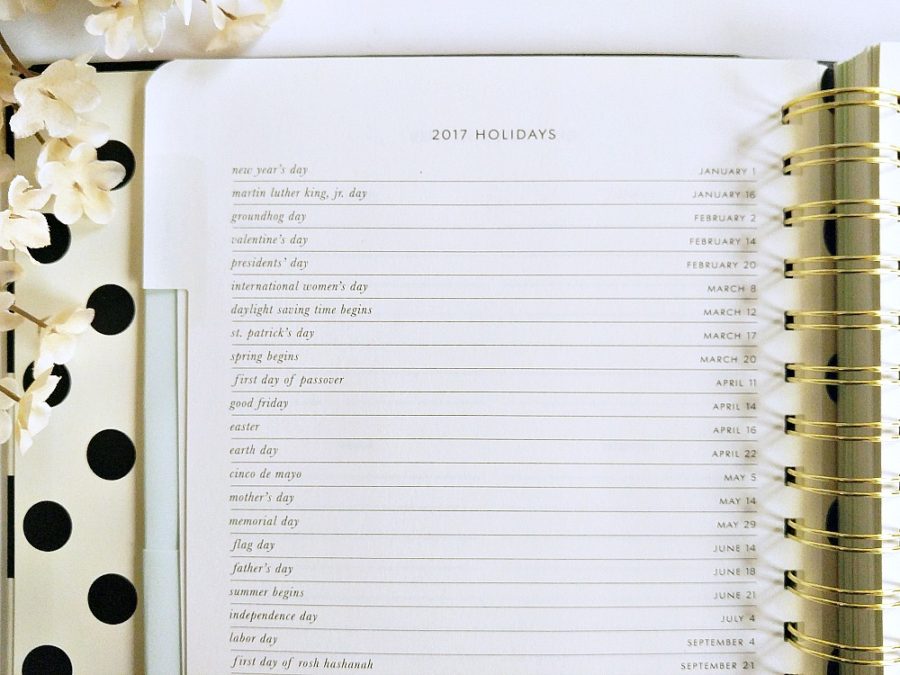 2017 HOLIDAYS
new year's day JANUARY 1
martin luther king, jr. day JANUARY 16
groundhog day FEBRUARY 2
valentine's day FEBRUARY 14
presidents' day FEBRUARY 20
international women's day MARCH 8
daylight saving time begins MARCH 12
st. patrick's day MARCH 17
spring begins MARCH 20
first day of passover APRIL 11
good friday APRIL 14
easter APRIL 16
earth day APRIL 22
cinco de mayo MAY 5
mother's day MAY 14
memorial day MAY 29
flag day JUNE 14
father's day JUNE 18
summer begins JUNE 21
independence day JULY 4
labor day SEPTEMBER 4
first day of rosh hashanah SEPTEMBER 21